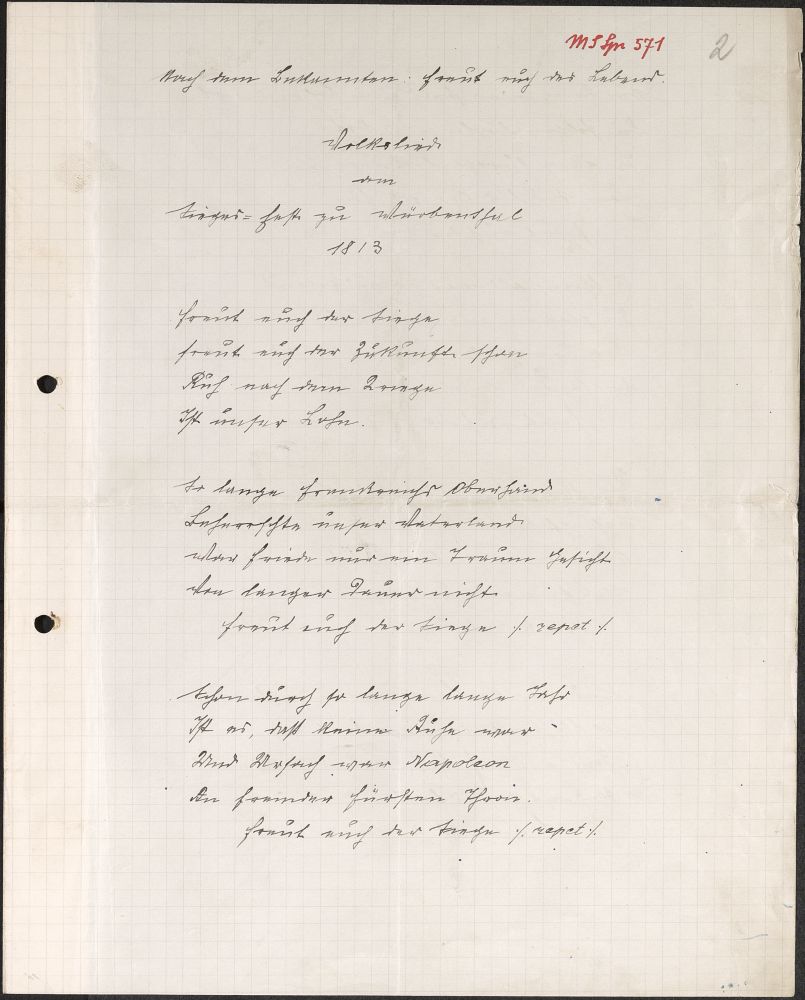 MS Spr 571
2
Nach dem Bekannten: Freut euch des Lebens.
Volkslied
am
Sieges=Feste zu Würbenthal
1813
Freut euch der Siege
freut euch der Zukunft schon
Ruh nach dem Kriege
Ist unser Lohn.
So lange Frankreichs Oberhand
Beherrschte unser Vaterland
War Friede nur ein Traum Gesicht
Von langer Dauer nicht.
Freut euch der Siege ·/. repet ·/.
Schon durch so lange lange Jahr
Ist es, daß keine Ruhe war
Und Ursach war Napoleon
An fremder Fürsten Thron.
Freut euch der Siege ·/. repet ·/.